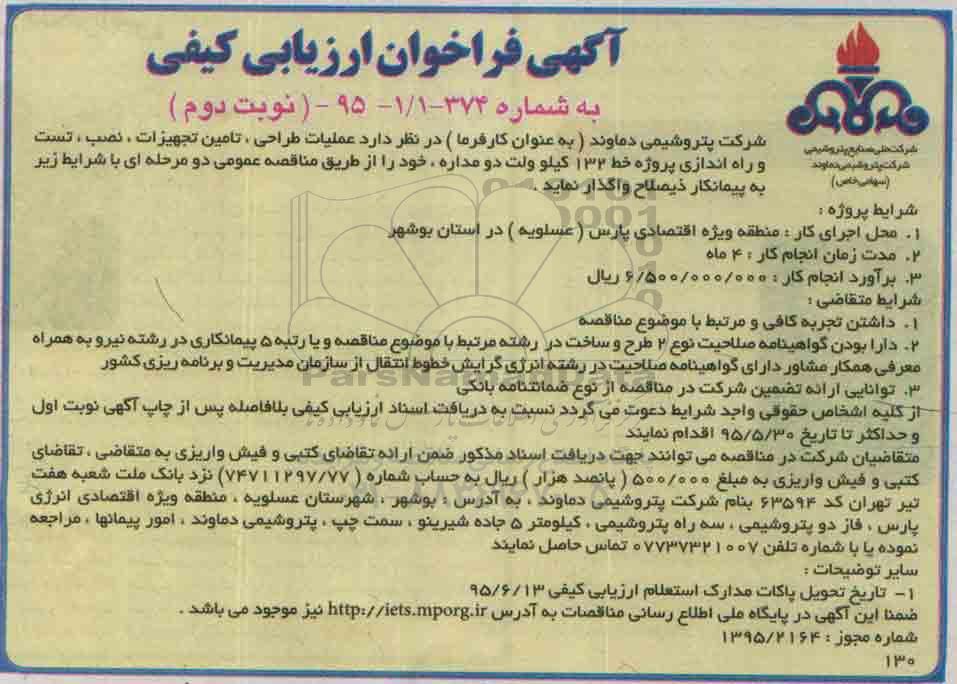 آگهی فراخوان ارزیابی کیفی
به شماره ۳۷۴-۱/۱- ۹۵ - ( نوبت دوم )
شرکت ملی صنایع پتروشیمی
شرکت پتروشیمی دماوند
(سهامی خاص)
شرکت پتروشیمی دماوند ( به عنوان کارفرما ) در نظر دارد عملیات طراحی ، تامین تجهیزات ، نصب ، تست
و راه اندازی پروژه خط ۱۳۲ کیلو ولت دو مداره ، خود را از طریق مناقصه عمومی دو مرحله ای با شرایط زیر
به پیمانکار ذیصلاح واگذار نماید .
شرایط پروژه :
۱. محل اجرای کار : منطقه ویژه اقتصادی پارس ( عسلویه ) در استان بوشهر
۲. مدت زمان انجام کار : ۴ ماه
۳. برآورد انجام کار : ۶/۵۰۰/۰۰۰/۰۰۰ ریال
شرایط متقاضی :
۱. داشتن تجربه کافی و مرتبط با موضوع مناقصه
۲. دارا بودن گواهینامه صلاحیت نوع ۲ طرح و ساخت در رشته مرتبط با موضوع مناقصه و یا رتبه ۵ پیمانکاری در رشته نیرو به همراه
معرفی همکار مشاور دارای گواهینامه صلاحیت در رشته انرژی گرایش خطوط انتقال از سازمان مدیریت و برنامه ریزی کشور
۳. توانایی ارائه تضمین شرکت در مناقصه از نوع ضمانتنامه بانکی
از کلیه اشخاص حقوقی واجد شرایط دعوت می گردد نسبت به دریافت اسناد ارزیابی کیفی بلافاصله پس از چاپ آگهی نوبت اول
و حداکثر تا تاریخ ۹۵/۵/۳۰ اقدام نمایند
متقاضیان شرکت در مناقصه می توانند جهت دریافت اسناد مذکور ضمن ارائه تقاضای کتبی و فیش واریزی به متقاضی ، تقاضای
کتبی و فیش واریزی به مبلغ ۵۰۰/۰۰۰ ( پانصد هزار ) ریال به حساب شماره ( ۷۴۷۱۱۲۹۷/۷۷) نزد بانک ملت شعبه هفت
تیر تهران کد ۶۳۵۹۴ بنام شرکت پتروشیمی دماوند ، به آدرس : بوشهر ، شهرستان عسلویه ، منطقه ویژه اقتصادی انرژی
پارس ، فاز دو پتروشیمی ، سه راه پتروشیمی ، کیلومتر ۵ جاده شیرینو ، سمت چپ ، پتروشیمی دماوند ، امور پیمانها ، مراجعه
نموده یا با شماره تلفن ۰۷۷۳۷۳۲۱۰۰۷ تماس حاصل نمایند
سایر توضیحات :
۱- تاریخ تحویل پاکات مدارک استعلام ارزیابی کیفی ۹۵/۶/۱۳
ضمنا این آگهی در پایگاه ملی اطلاع رسانی مناقصات به آدرس http://iets.mporg.ir نیز موجود می باشد .
شماره مجوز : ۱۳۹۵/۲۱۶۴
۱۳۰